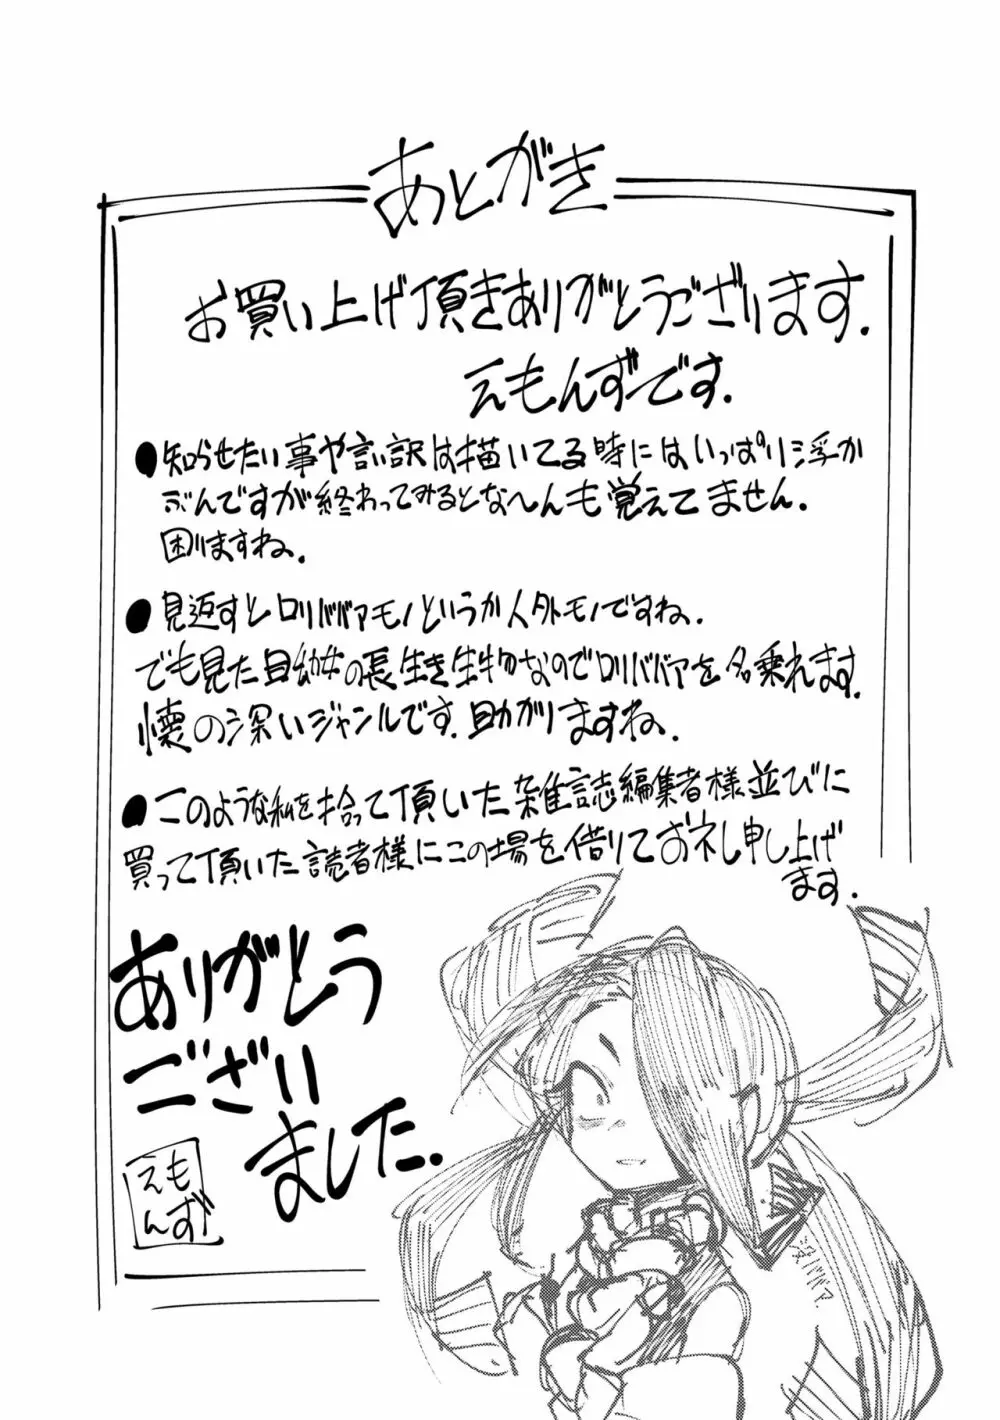 あとがき
お買い上げ頂きありがとうございます.
えもんずです.
●知らせたい事や言い訳は描いてる時にはいっぱい浮か
ぶんですが終わってみるとなーんも覚えてません.
困りますね.
●見返すとロリババアモノというか人外モノですね.
でも見た目幼女の長生き生物なのでロリババアを名乗れます.
懐の深いジャンルです.助かりますね.
●このような私を拾って頂いた雑誌編集者様並びに
買って頂いた読者様にこの場を借りてお礼申し上げ
ます.
ありがとう
ござい
ました.
えもんず